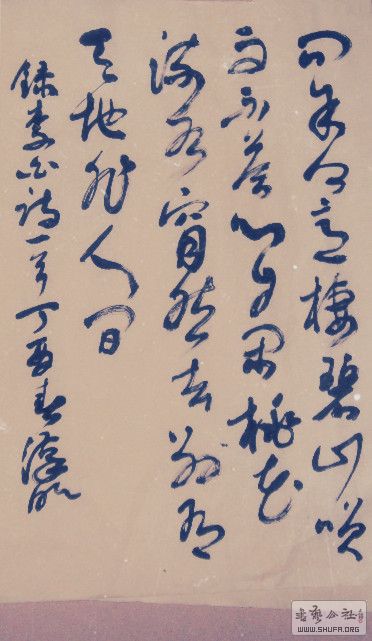 问余何意棲碧山咲
而不答心自闲桃花
流水窅然去别有
天地非人间
録李白诗一首丁酉春
书艺公社
WWW.SHUFA.ORG